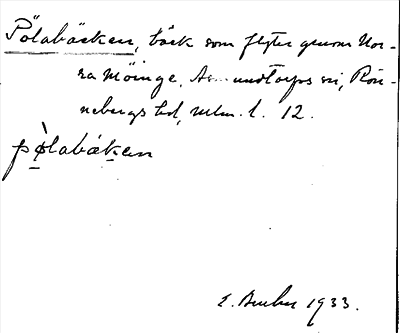 Pölabäcken, bäck som flyter genom Nor-
ra Möinge, Asmundtorps sn, Rön-
nebergs hd, Mlm. l. 12.
pø̀labäkən
1933.